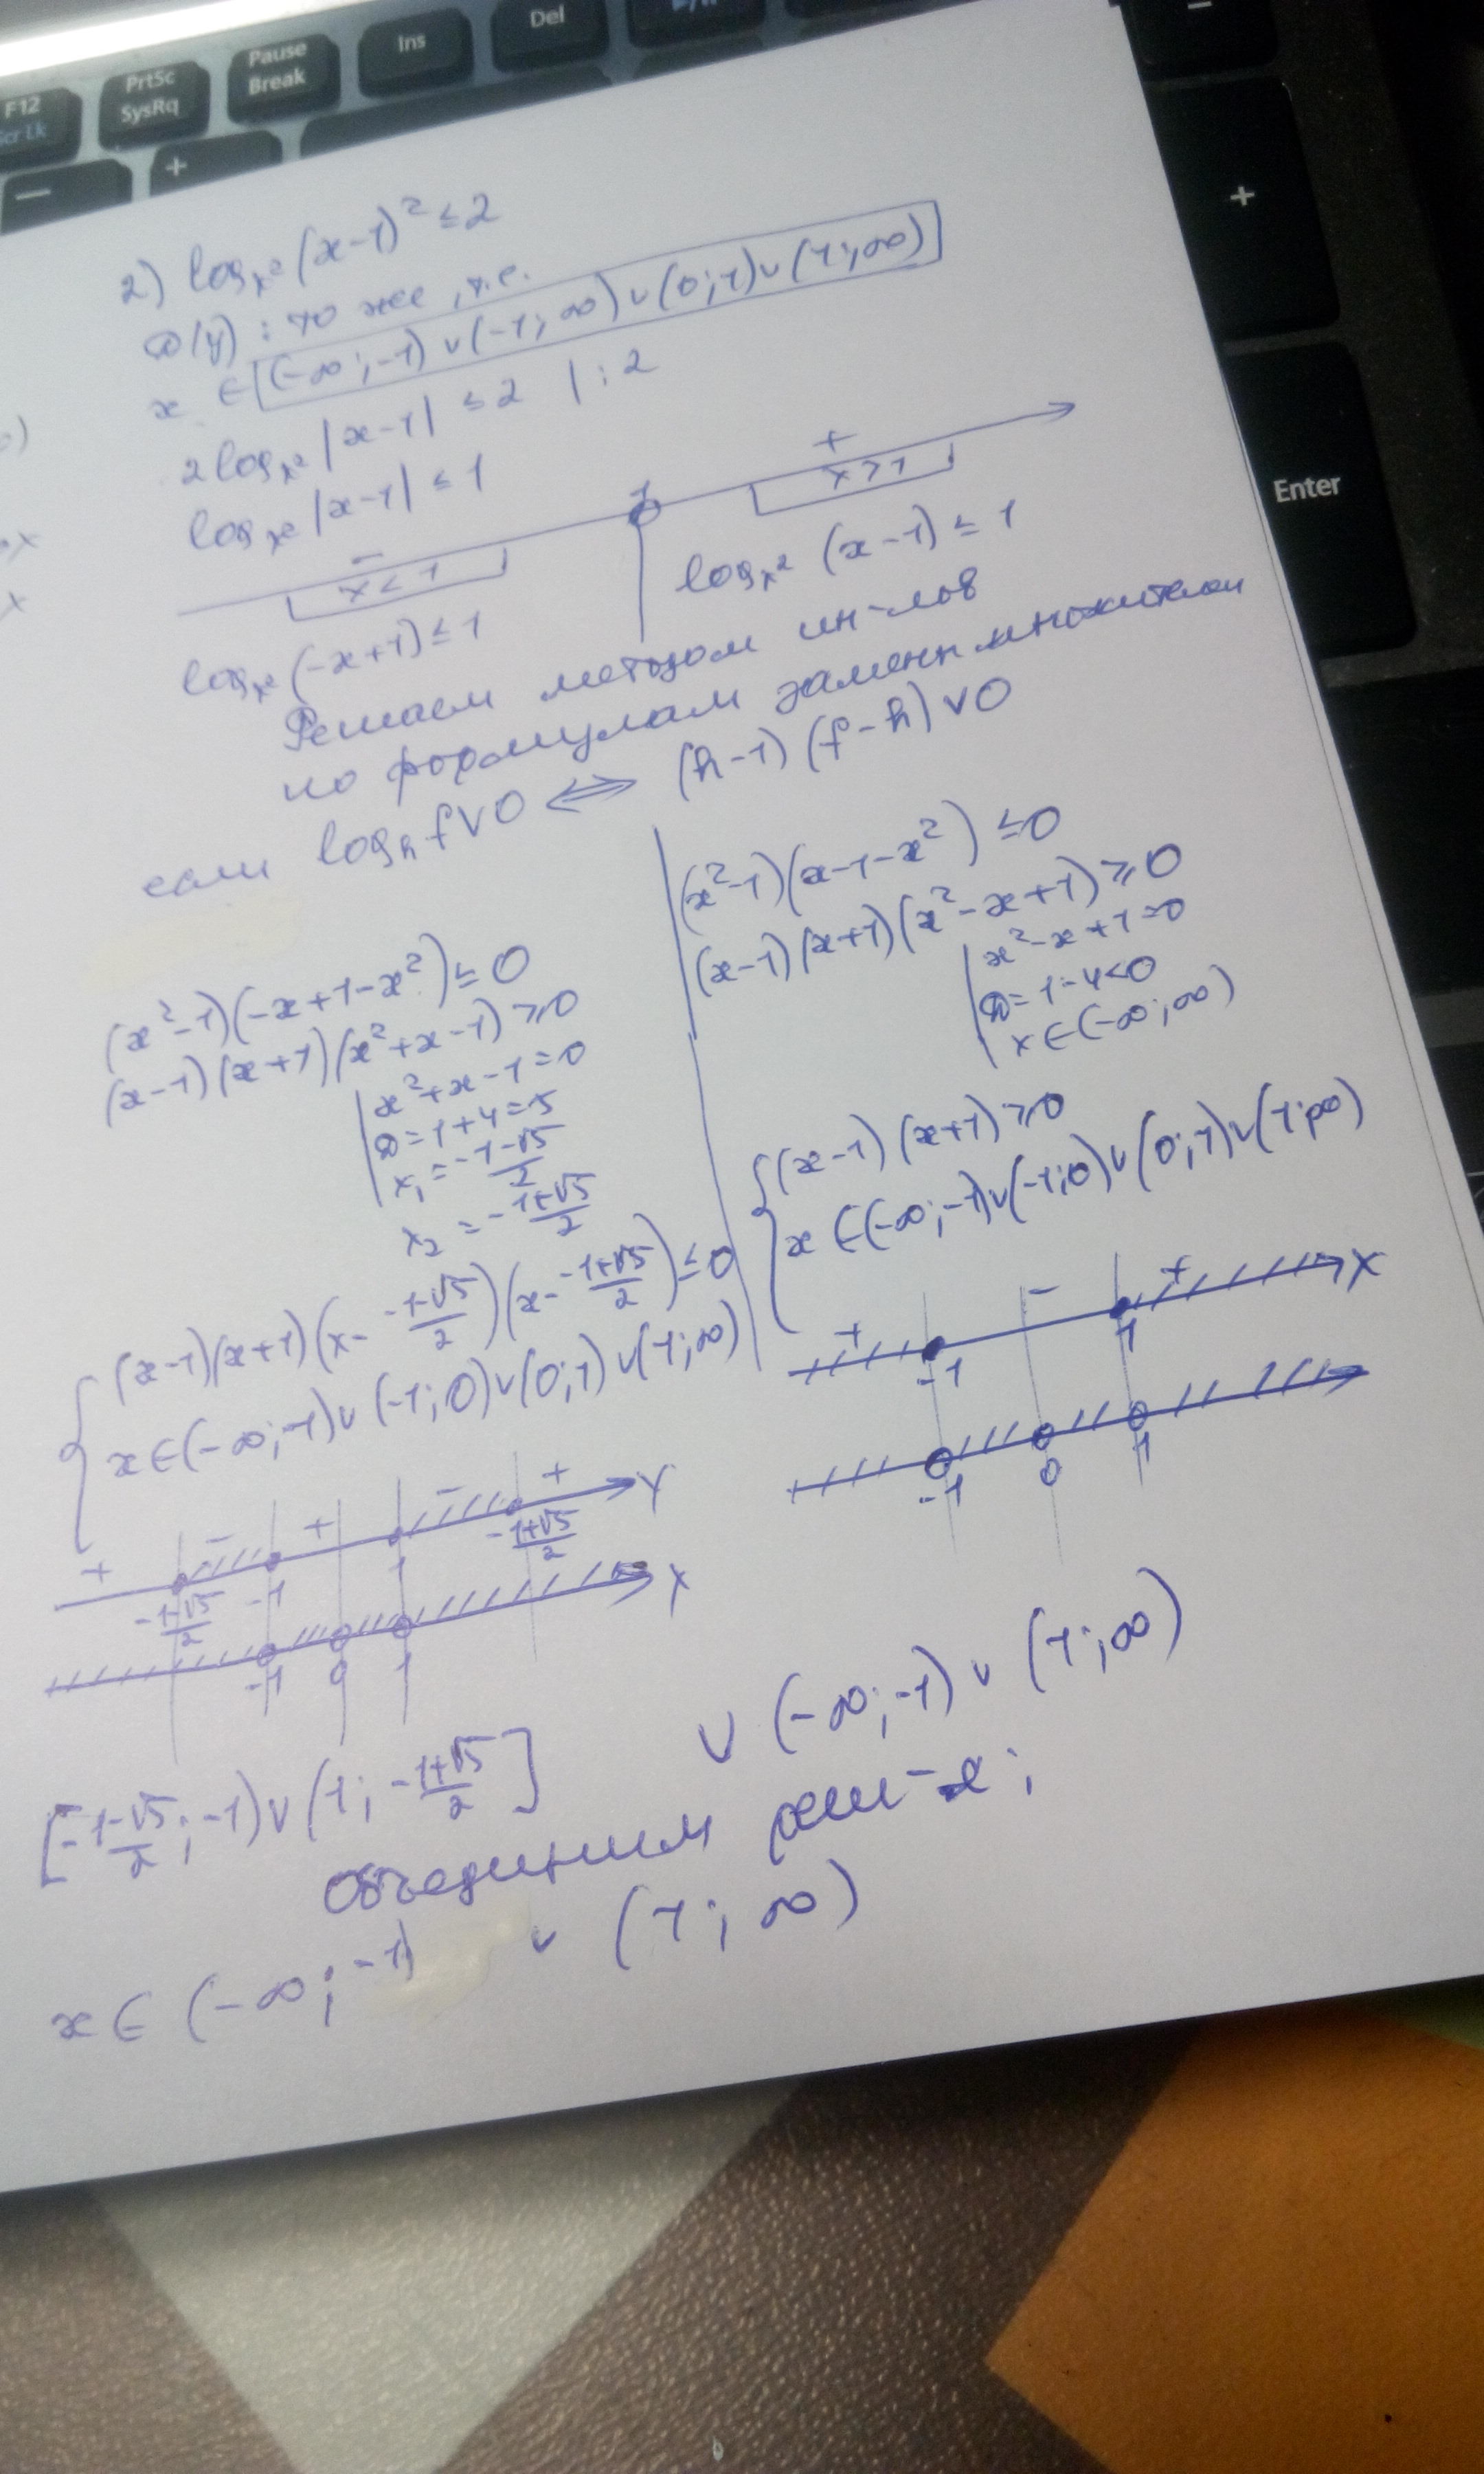 F12
Scr Lk
PrtSc
SysRq
Pause
Break
Ins
Del
+
+
Enter
2) log_{x²}(x-1)² ≤ 2
D(y): то же, т.е.
x ∈ (-∞; -1) ∪ (-1; ∞) ∪ (0; 1) ∪ (1; ∞)
2log_{x²}|x-1| ≤ 2 | :2
log_{x²}|x-1| ≤ 1
- 1 +
x < 1 x > 1
log_{x²}(-x+1) ≤ 1 log_{x²}(x-1) ≤ 1
Решаем методом ин-лов
по формулам замены множителей
если log_h f ∨ 0 ⟺ (h-1)(f-h) ∨ 0
(x²-1)(-x+1-x²) ≤ 0
(x-1)(x+1)(x²+x-1) ≥ 0
x²+x-1=0
D=1+4=5
x₁ = (-1-√5)/2
x₂ = (-1+√5)/2
(x-1)(x+1)(x - (-1-√5)/2)(x - (-1+√5)/2) ≤ 0
x ∈ (-∞; -1) ∪ (-1; 0) ∪ (0; 1) ∪ (1; ∞)
+ - + - + X
(-1-√5)/2 -1 1 (-1+√5)/2
X
-1 0 1
[(-1-√5)/2; -1) ∪ (1; (-1+√5)/2]
(x²-1)(x-1-x²) ≤ 0
(x-1)(x+1)(x²-x+1) ≥ 0
x²-x+1=0
D=1-4<0
x ∈ (-∞; ∞)
(x-1)(x+1) ≥ 0
x ∈ (-∞; -1) ∪ (-1; 0) ∪ (0; 1) ∪ (1; ∞)
+ - + X
-1 1
-1 0 1
∪ (-∞; -1) ∪ (1; ∞)
Объединим реш-я:
x ∈ (-∞; -1) ∪ (1; ∞)